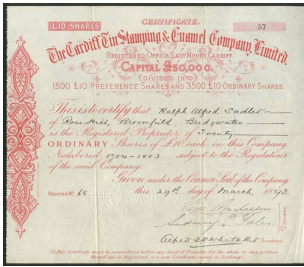 £10 SHARES
CERTIFICATE.
57
The Cardiff Tin Stamping & Enamel Company, Limited.
REGISTERED OFFICE, EAST MOORS, CARDIFF.
CAPITAL £50,000.
DIVIDED INTO
1500 £10 PREFERENCE SHARES AND 3500 £10 ORDINARY SHARES.
This is to certify that Ralph Alfred Sadler
of Rose Hill, Broomfield, Bridgwater
is the Registered Proprietor of Twenty
ORDINARY Shares of £10 each in this Company
Numbered 1784-1803 subject to the Regulations
of the said Company.
Given under the Common Seal of the Company
68 this 29th day of March 1893
Secretary